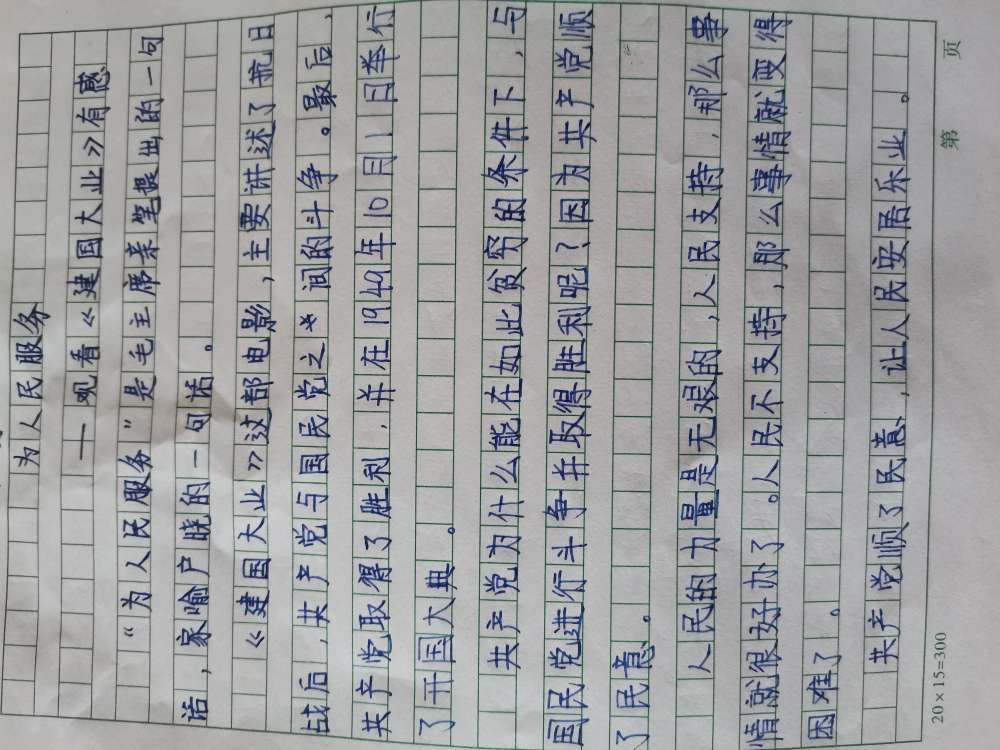 为人民服务
——观看《建国大业》有感
“为人民服务”是毛主席亲笔提出的一句
话，家喻户晓的一句话。
《建国大业》这部电影，主要讲述了抗日
战后，共产党与国民党之间的斗争。最后，
共产党取得了胜利，并在1949年10月1日举行
了开国大典。
共产党为什么能在如此贫穷的条件下，与
国民党进行斗争并取得胜利呢？因为共产党顺
了民意。
人民的力量是无艰的，人民支持，那么事
情就很好办了。人民不支持，那么事情就变得
困难了。
共产党顺了民意，让人民安居乐业。
第 页
20×15=300